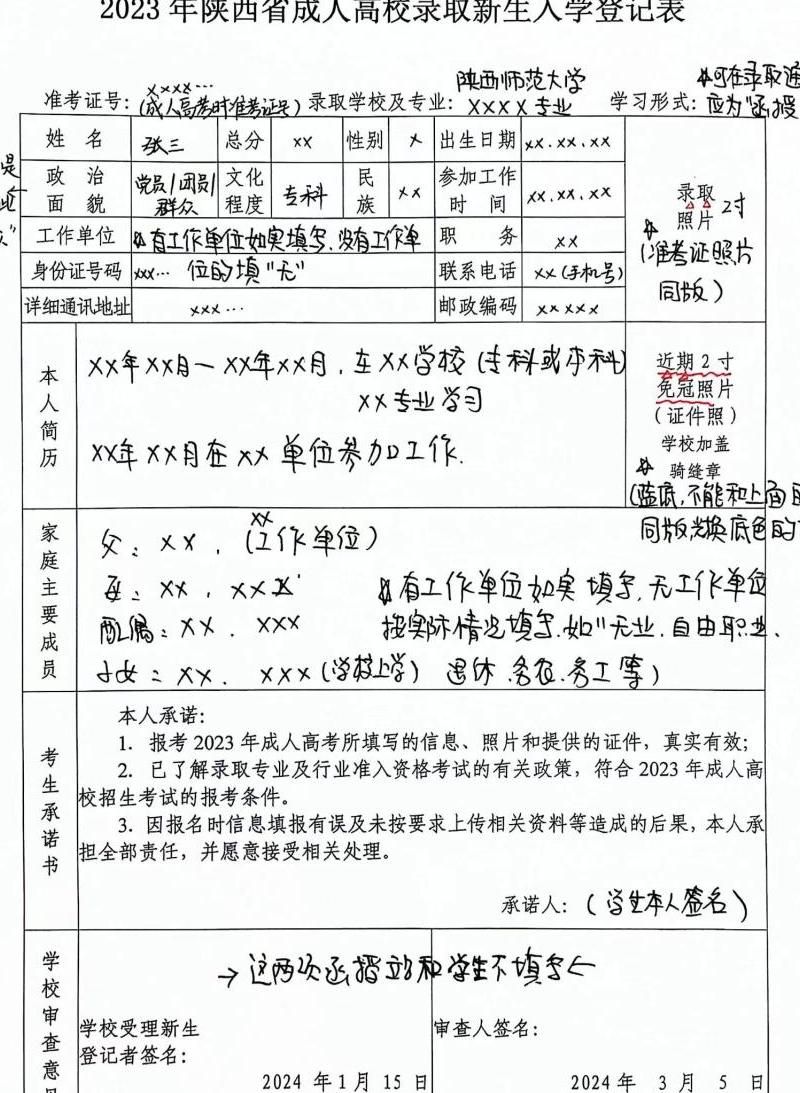 2023 年陕西省成人高校录取新生入学登记表
xxxx… 陕西师范大学 可在录取通
准考证号：(成人高考时准考证号) 录取学校及专业：XXXX 专业 学习形式：应为"函授
姓 名 张三 总分 xx 性别 x 出生日期 xx.xx.xx
是
政 治 面 貌 党员/团员/群众 文化程度 专科 民族 xx 参加工作时 间 xx.xx.xx
录取照片 2寸
(准考证照片同版)
工作单位 有工作单位如实填写,没有工作单 职 务 xx
身份证号码 xxx… 位的填"无" 联系电话 xx(手机号)
详细通讯地址 xxx… 邮政编码 xxxxx
本人简历
xx年xx月—xx年xx月，在xx学校(专科或本科)
xx专业学习
xx年xx月在xx单位参加工作.
近期 2 寸
免冠照片
（证件照）
学校加盖
骑缝章
(蓝底,不能和上面
同版,换底色的
家庭主要成员
父：xx，(xx工作单位)
母：xx，xxx 有工作单位如实填写,无工作单位
配偶：xx. xxx 按实际情况填写.如"无业.自由职业、
子女：xx. xxx(学校上学) 退休.务农.务工等)
考生承诺书
本人承诺：
1. 报考 2023 年成人高考所填写的信息、照片和提供的证件，真实有效；
2. 已了解录取专业及行业准入资格考试的有关政策，符合 2023 年成人高
校招生考试的报考条件。
3. 因报名时信息填报有误及未按要求上传相关资料等造成的后果，本人承
担全部责任，并愿意接受相关处理。
承诺人：(学生本人签名)
学校审查意见
→这两项函授站和学生不填写←
学校受理新生 审查人签名：
登记者签名：
2024 年 1 月 15 日 2024 年 3 月 5 日